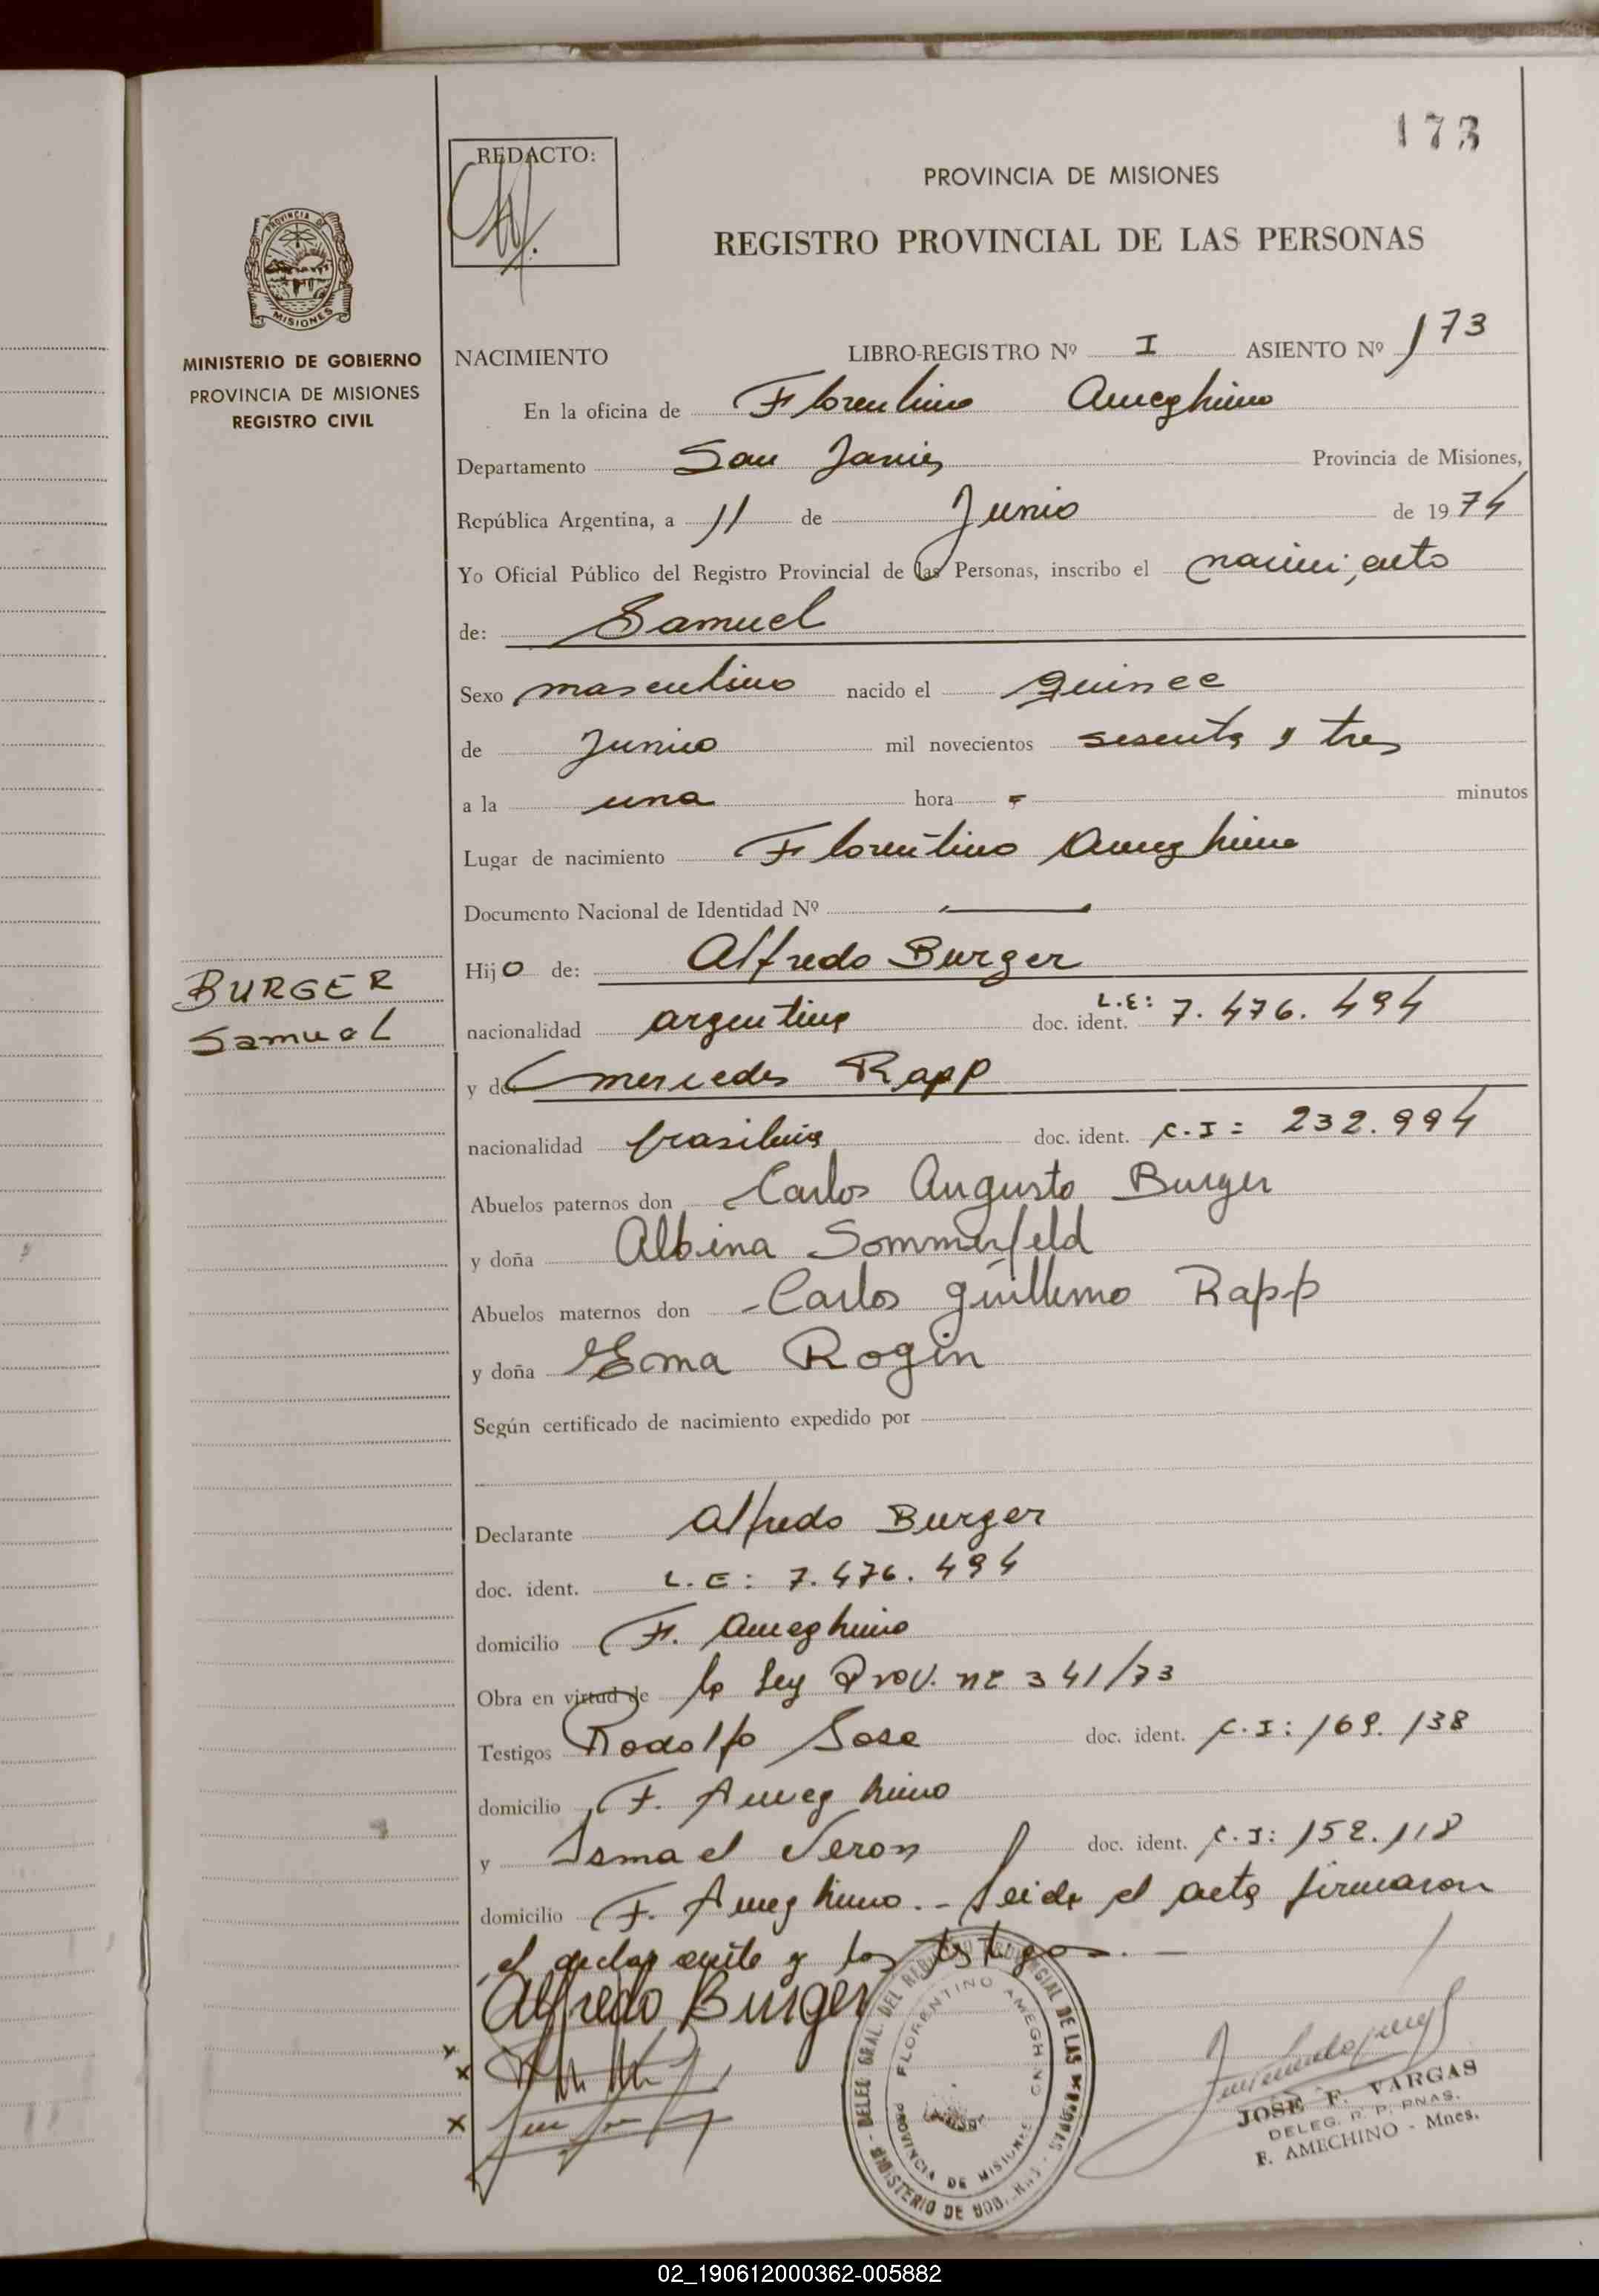 173
REDACTO:
PROVINCIA DE MISIONES
REGISTRO PROVINCIAL DE LAS PERSONAS
PROVINCIA DE
MISIONES
MINISTERIO DE GOBIERNO
PROVINCIA DE MISIONES
REGISTRO CIVIL
NACIMIENTO LIBRO-REGISTRO Nº I ASIENTO Nº 173
En la oficina de Florentino Ameghino
Departamento San Javier Provincia de Misiones,
República Argentina, a 11 de Junio de 1974
Yo Oficial Público del Registro Provincial de las Personas, inscribo el nacimiento
de: Samuel
Sexo masculino nacido el quince
de Junio mil novecientos sesenta y tres
a la una hora = minutos
Lugar de nacimiento Florentino Ameghino
Documento Nacional de Identidad Nº —
Hijo de: Alfredo Burger
BURGER
Samuel
nacionalidad argentina doc. ident. L.E: 7.476.494
y de Mercedes Rapp
nacionalidad brasileña doc. ident. C.I: 232.994
Abuelos paternos don Carlos Augusto Burger
y doña Albina Sommerfeld
Abuelos maternos don Carlos Guillermo Rapp
y doña Ema Rogin
Según certificado de nacimiento expedido por
Declarante Alfredo Burger
doc. ident. L.E: 7.476.494
domicilio F. Ameghino
Obra en virtud de la Ley Prov. nº 341/73
Testigos Rodolfo Sosa doc. ident. C.I: 169.138
domicilio F. Ameghino
y Ismael Veron doc. ident. C.I: 152.118
domicilio F. Ameghino.- Leida el acta firmaron
el declarante y los testigos. —
Alfredo Burger
DELEG. GRAL. DEL REGISTRO PROVINCIAL DE LAS
FLORENTINO AMEGHINO
PROVINCIA DE MISIONES
MINISTERIO DE GOB.
JOSE F. VARGAS
DELEG. R. P. PNAS.
F. AMECHINO - Mnes.
02_190612000362-005882